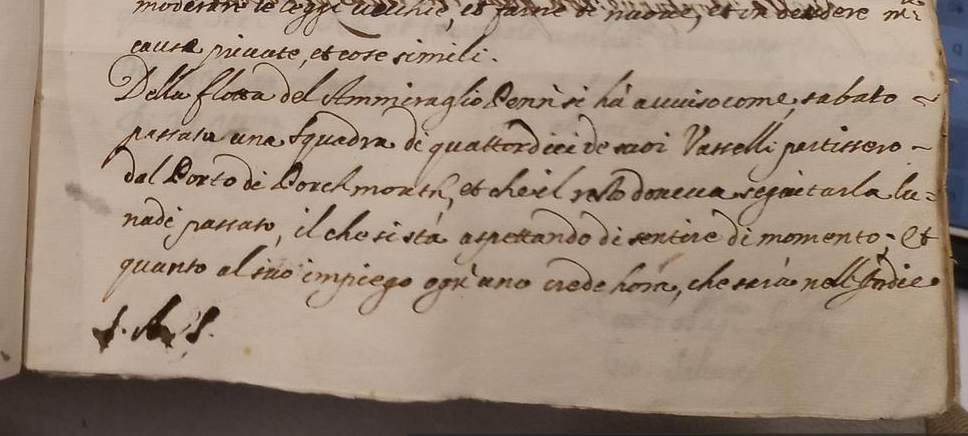 moderare le leggi vecchie, et farne di nuove, et in decidere
cause private, et cose simili.
Della flotta del Ammiraglio Penn si hà avviso come, sabato
passato una squadra di quattordici de suoi Vasselli partissero
dal Porto di Porchmorth, et che il resto doveva seguitarla lu=
nadi passato, il che si stà aspettando di sentire di momento; et
quanto al suo impiego ogn'uno crede hora, che serà nell'Indie